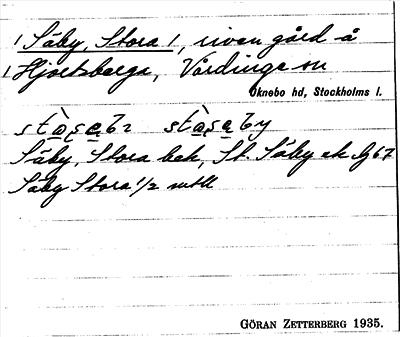 (Säby, Stora), riven gård å
(Hjortsberga, Vårdinge sn
Öknebo hd, Stockholms l.
Säby, Stora bek, St. Säby ek
Säby Stora 1/2 mtl
GÖRAN ZETTERBERG 1935.